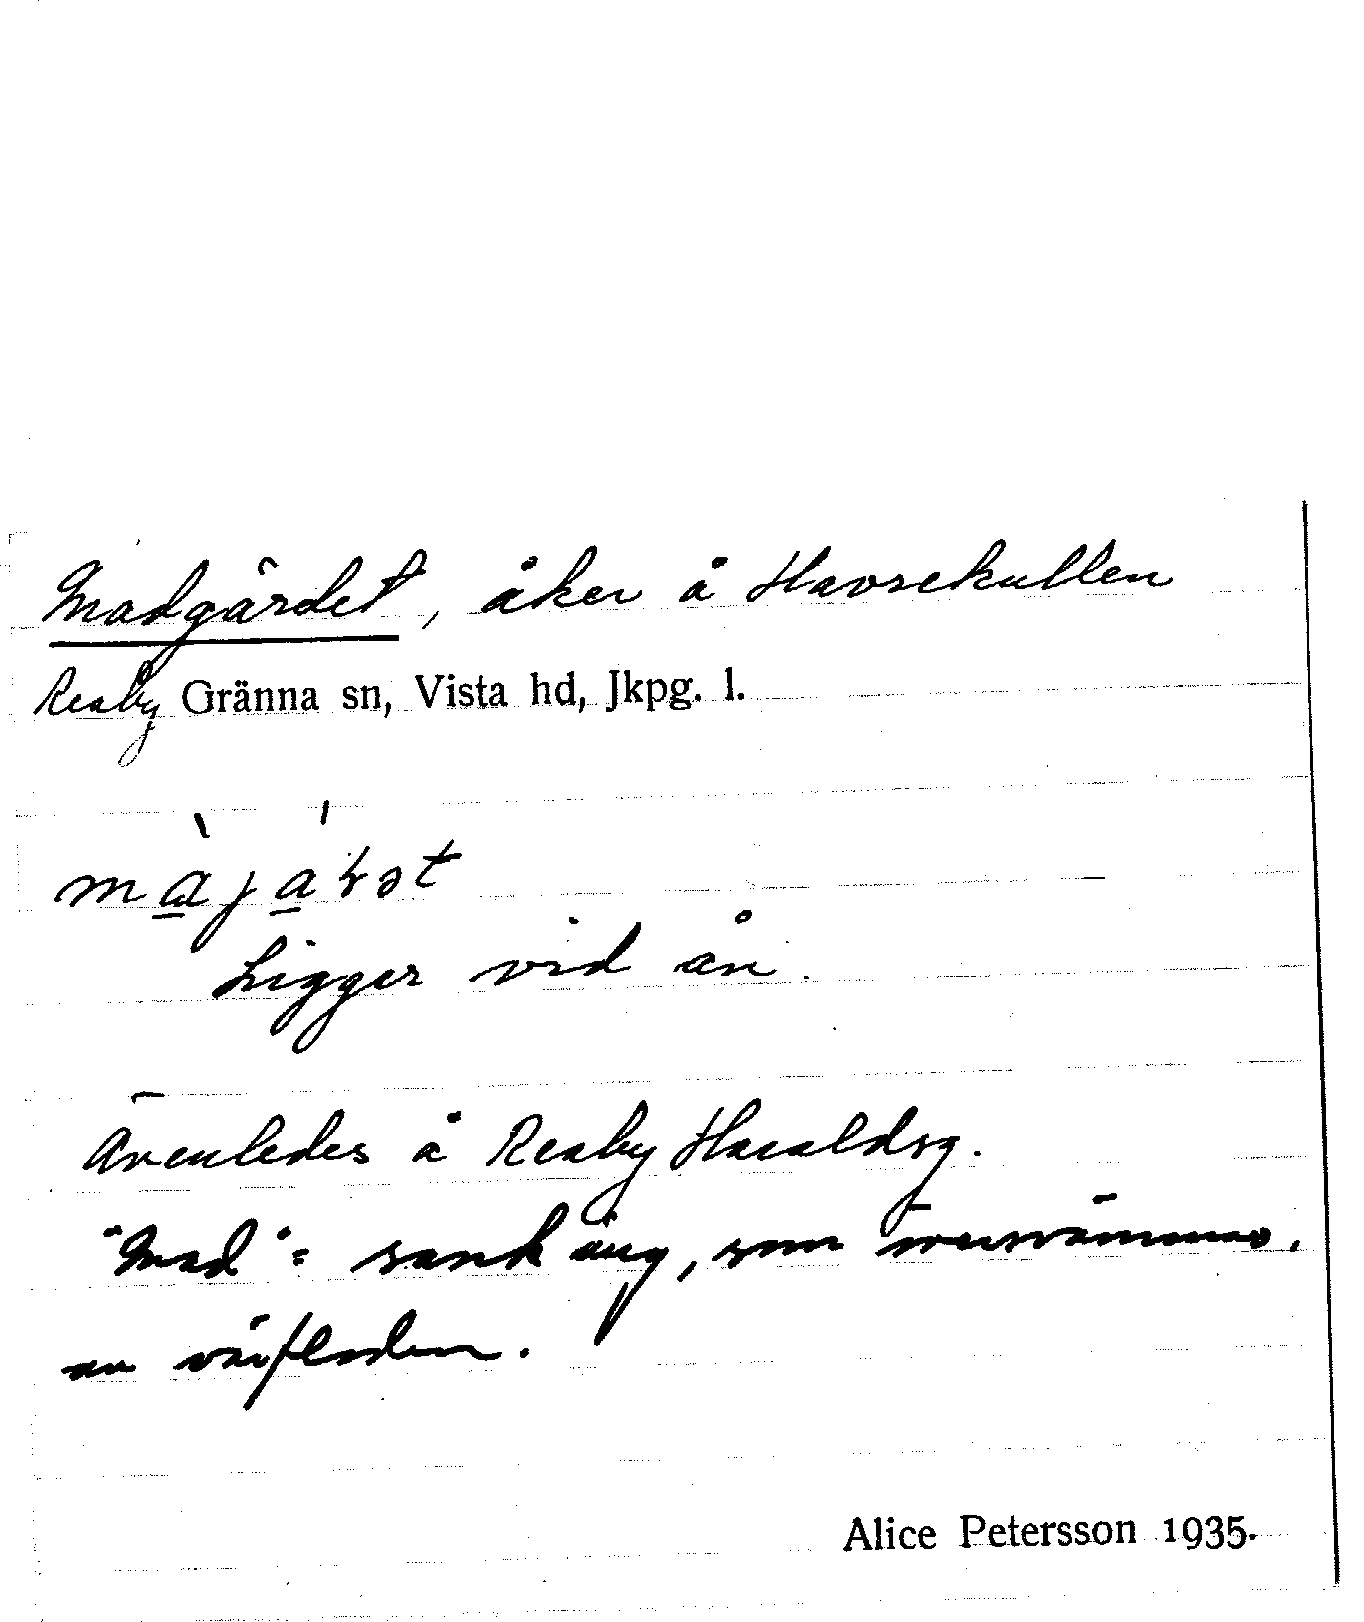 Madgärdet, åker å Havrekullen
Reaby Gränna sn, Vista hd, Jkpg. l.
Ligger vid ån.
Ävenledes å Reaby Haraldsg.
"Mad" = sank äng, som översvämmas,
av vårfloden.
Alice Petersson 1935.